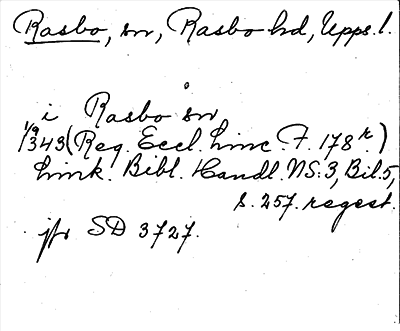 Rasbo, sn, Rasbo hd, Upps. l.
i Rasbo sn
1/9 1343 (Reg. Eccl. Linc. F. 178 r.)
Link. Bibl. Handl. NS:3, Bil. 5,
s. 257. regest.
jfr SD 3727.